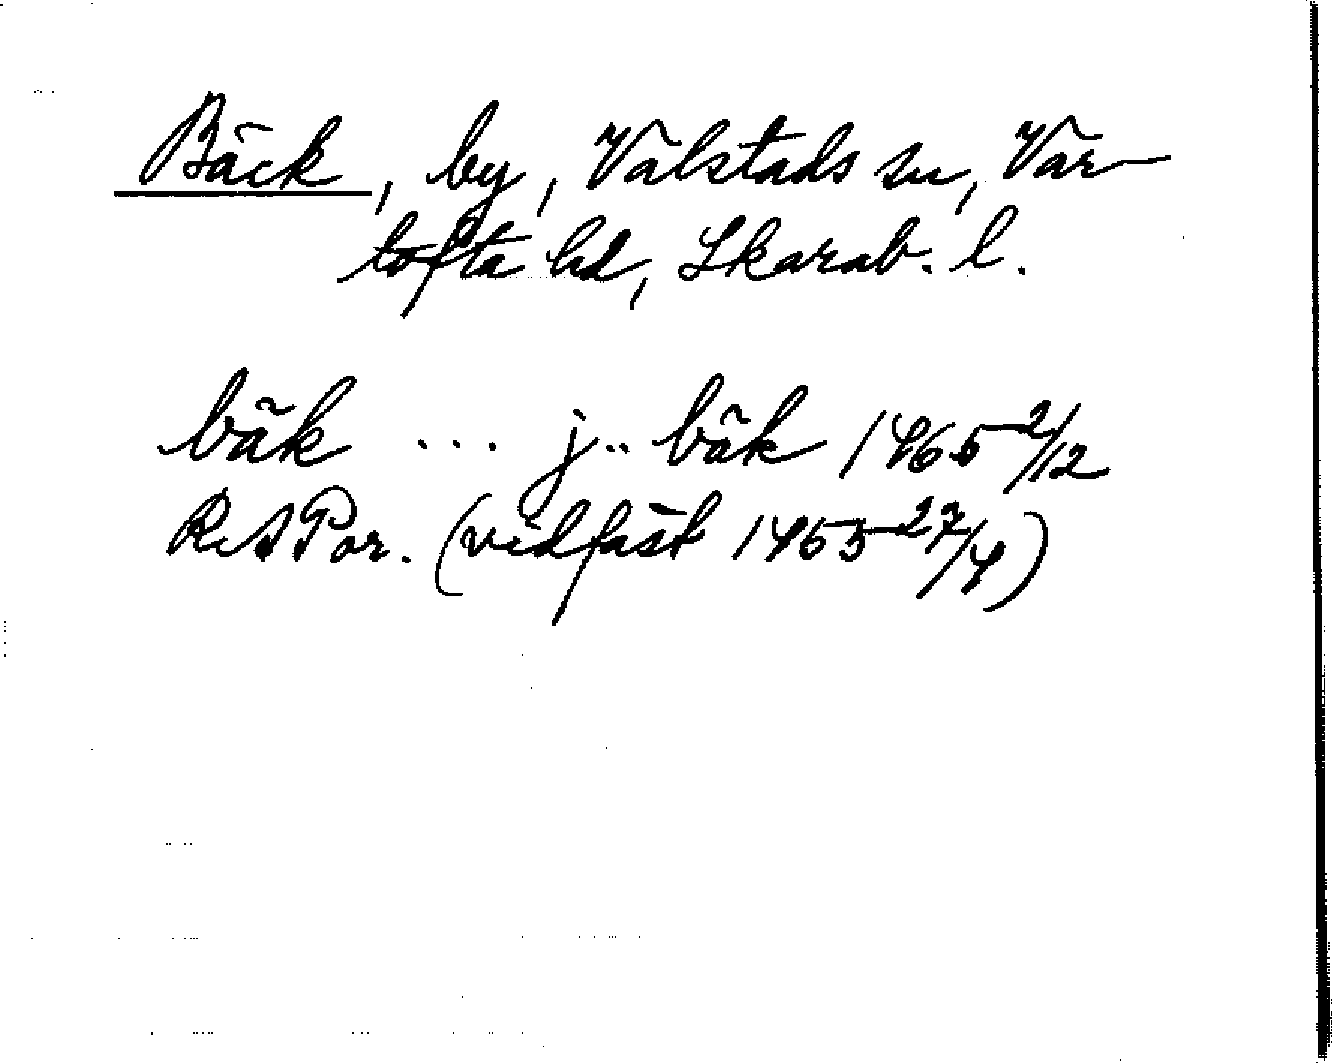 Bäck, by, Vålstads sn, Var-
tofta hd, Skarab. l.
bäk ... j .. bäk 1465 2/12
RAPor. (vidfäst 1465 27/4)